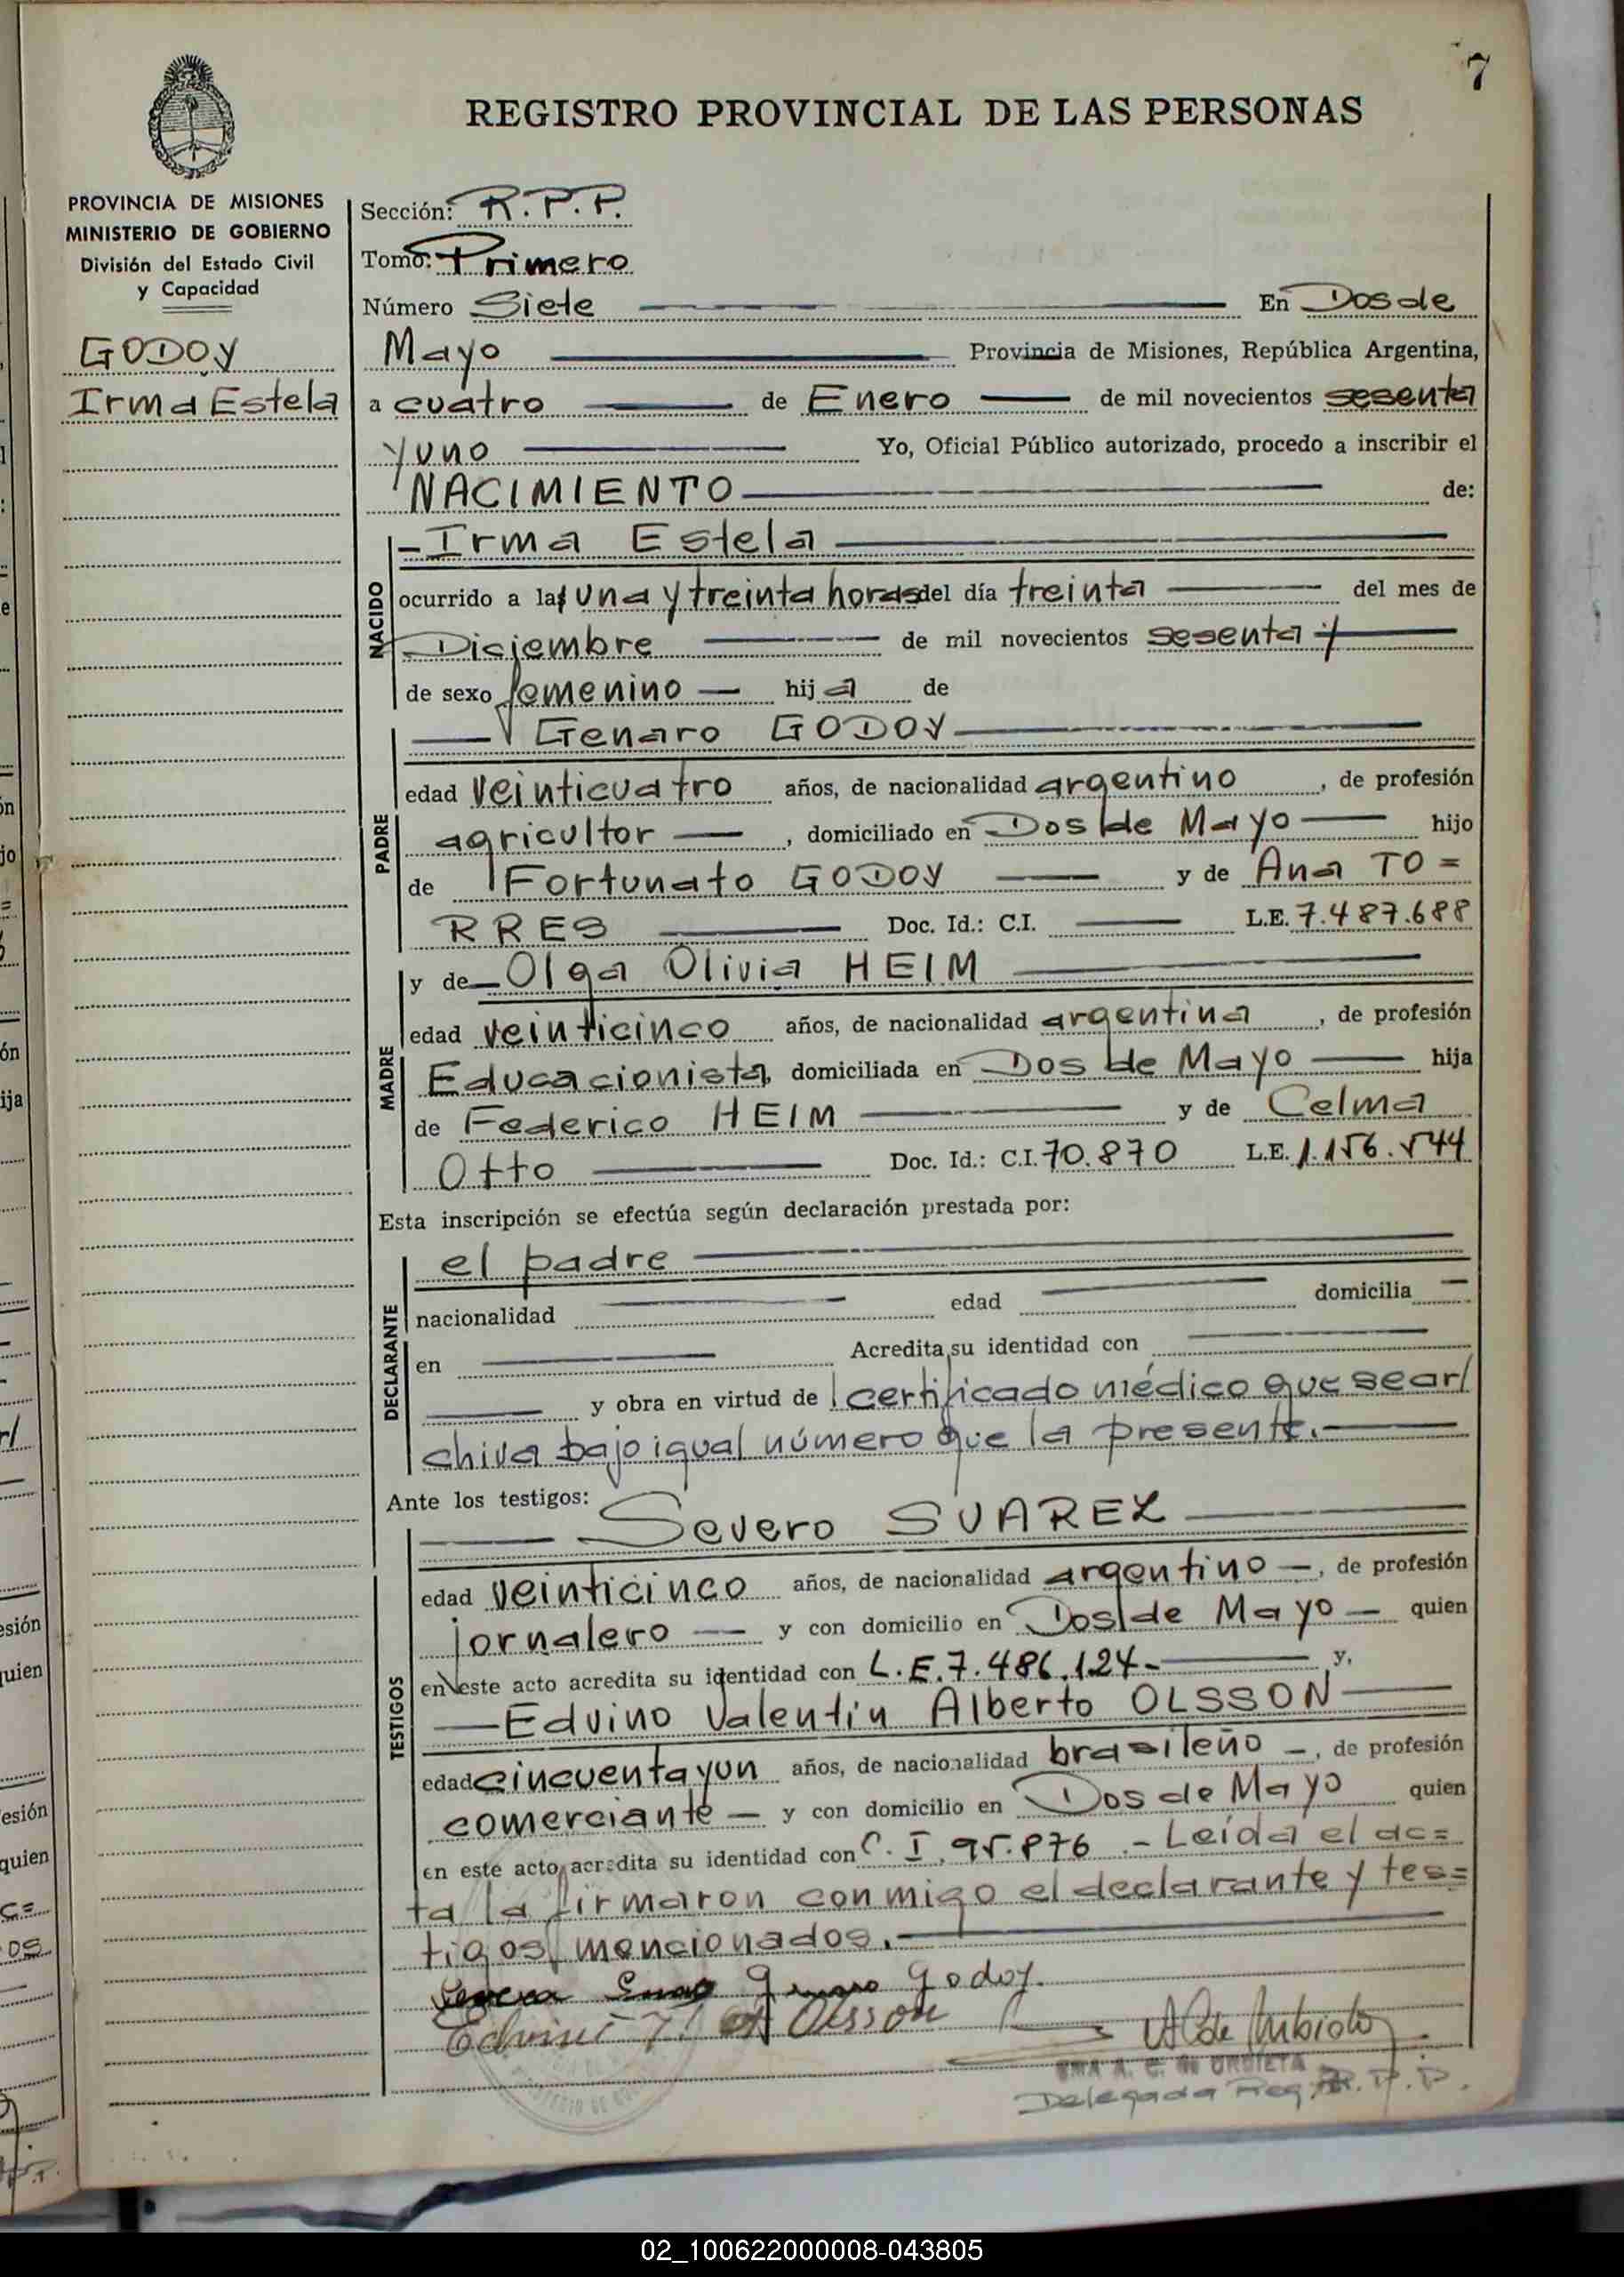 7
REGISTRO PROVINCIAL DE LAS PERSONAS
PROVINCIA DE MISIONES
MINISTERIO DE GOBIERNO
División del Estado Civil
y Capacidad
GODOY
Irma Estela
Sección: R.P.P.
Tomo: Primero
Número Siete En Dos de
Mayo Provincia de Misiones, República Argentina,
a cuatro de Enero de mil novecientos sesenta
y uno Yo, Oficial Público autorizado, procedo a inscribir el
NACIMIENTO de:
NACIDO
Irma Estela
ocurrido a las una y treinta horas del día treinta del mes de
Diciembre de mil novecientos sesenta y
de sexo femenino hija de
PADRE
Genaro GODOY
edad veinticuatro años, de nacionalidad argentino, de profesión
agricultor, domiciliado en Dos de Mayo hijo
de Fortunato GODOY y de Ana TO=
RRES Doc. Id.: C.I. L.E. 7.487.688
MADRE
y de Olga Olivia HEIM
edad veinticinco años, de nacionalidad argentina, de profesión
Educacionista, domiciliada en Dos de Mayo hija
de Federico HEIM y de Celma
Otto Doc. Id.: C.I. 70.870 L.E. 1.156.544
Esta inscripción se efectúa según declaración prestada por:
DECLARANTE
el padre
nacionalidad edad domicilia
en Acredita su identidad con
y obra en virtud de certificado médico que se ar/
chiva bajo igual número que la presente.
Ante los testigos:
TESTIGOS
Severo SUAREZ
edad veinticinco años, de nacionalidad argentino, de profesión
jornalero y con domicilio en Dos de Mayo quien
en este acto acredita su identidad con L.E. 7.486.124 y,
Edvino Valentin Alberto OLSSON
edad cincuenta y un años, de nacionalidad brasileño, de profesión
comerciante y con domicilio en Dos de Mayo quien
en este acto acredita su identidad con C.I. 95.876.- Leída el ac=
ta la firmaron conmigo el declarante y tes=
tigos mencionados.
Genaro Godoy.
Olsson
Delegada Reg. R.P.P.
02_100622000008-043805